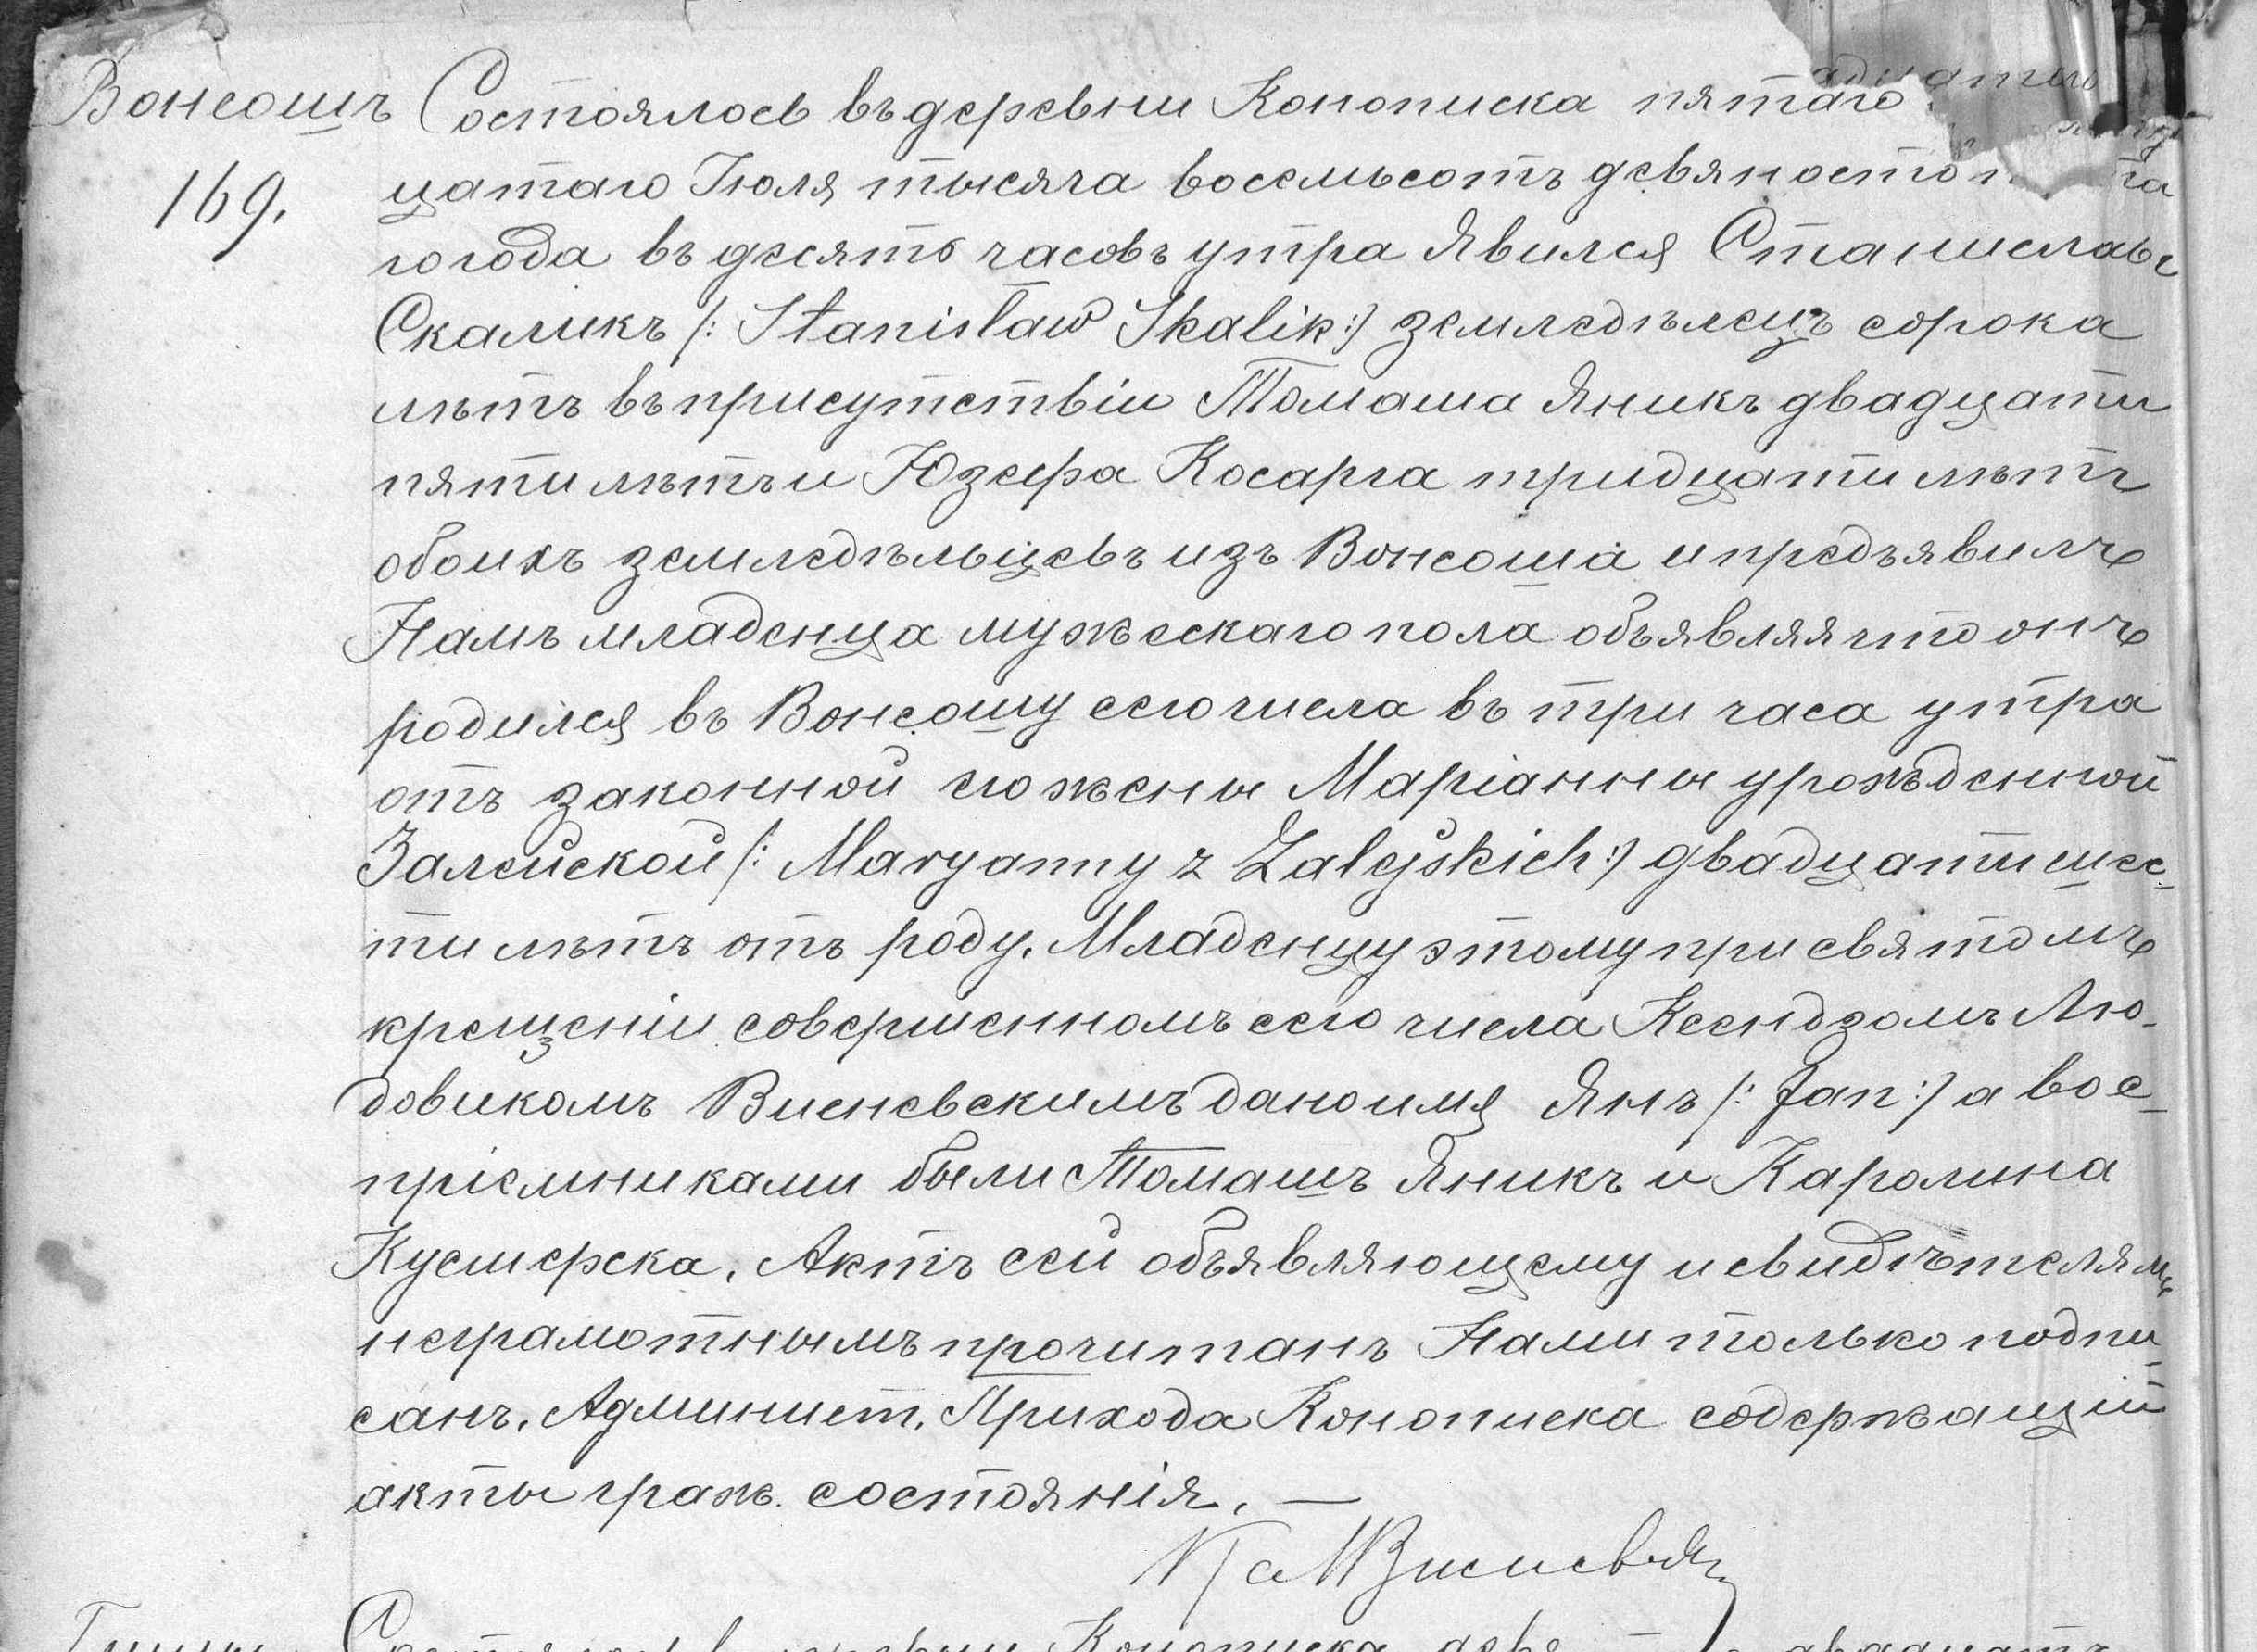 Вонсошъ
169.
Состоялось въ деревни Конописка пятаго
цатаго Іюля тысяча восемьсотъ девяносто
го года въ десять часовъ утра явился Станиславъ
Скаликъ /: Stanisław Skalik :/ земледѣлецъ сорока
лѣтъ въ присутствіи Томаша Яникъ двадцати
пяти лѣтъ и Юзефа Косарга тридцати лѣтъ
обоихъ земледѣльцевъ изъ Вонсоша и предъявилъ
Намъ младенца мужескаго пола объявляя что онъ
родился въ Вонсошу сего числа въ три часа утра
отъ законной его жены Маріанны урожденной
Залейской /: Maryanny z Zalejskich :/ двадцати шес-
ти лѣтъ отъ роду. Младенцу этому при святомъ
крещеніи совершенномъ сего числа Ксендзомъ Лю-
довикомъ Висневскимъ дано имя Янъ /: Jan :/ а вос-
пріемниками были Томашъ Яникъ и Каролина
Кусмерска. Актъ сей объявляющему и свидѣтелямъ
неграмотнымъ прочитанъ Нами только подпи-
санъ. Админист. Прихода Конописка содержащій
акты граж. состоянія. —
Состоялось Конописка